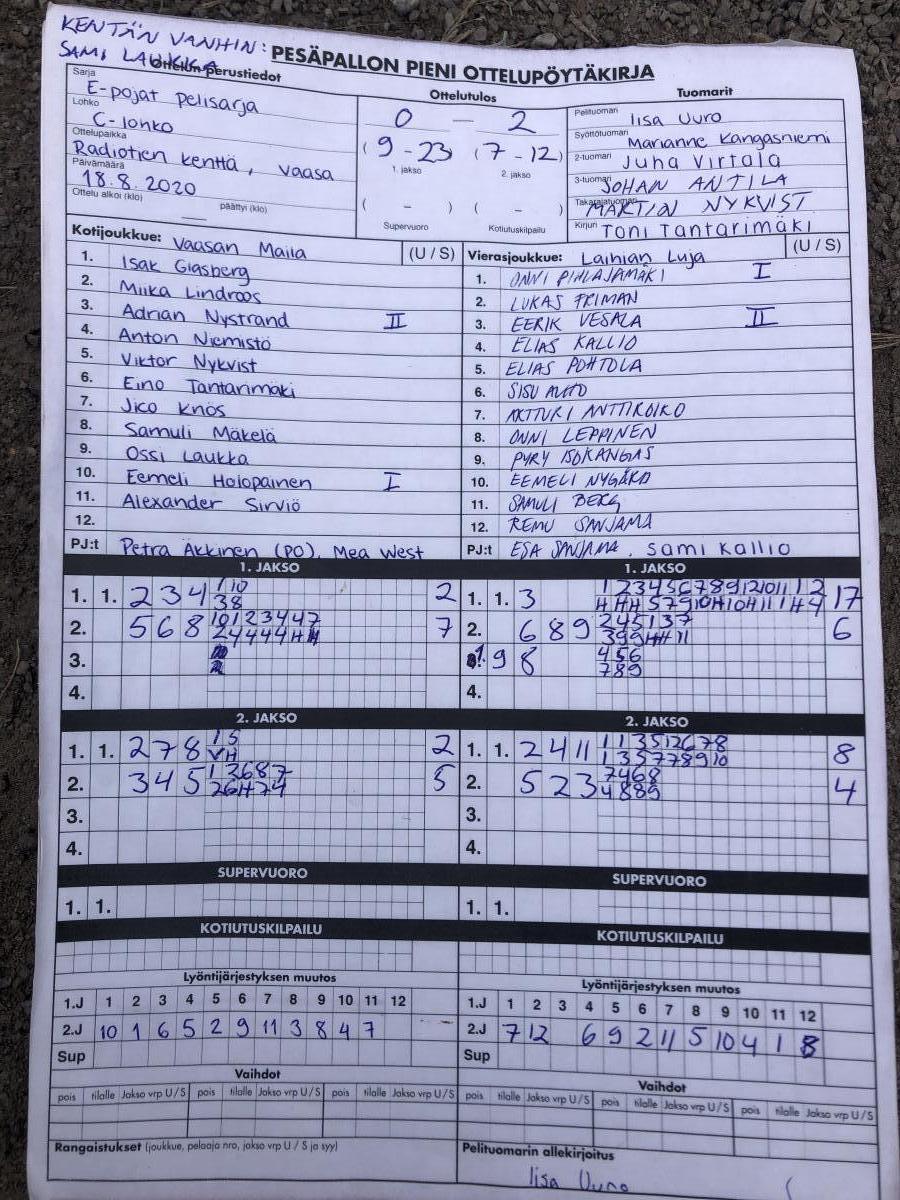 KENTÄN VANHIN:
SAMI LAUKKA
PESÄPALLON PIENI OTTELUPÖYTÄKIRJA
Ottelun perustiedot
Sarja
E-pojat pelisarja
Lohko
C-lohko
Ottelupaikka
Radiotien kenttä, Vaasa
Päivämäärä
18.8.2020
Ottelu alkoi (klo) päättyi (klo)
Ottelutulos
0 — 2
(9-23) (7-12)
1. jakso 2. jakso
( - ) ( - )
Supervuoro Kotiutuskilpailu
Tuomarit
Pelituomari Iisa Uuro
Syöttötuomari Marianne Kangasniemi
2-tuomari Juha Virtala
3-tuomari JOHAN ANTILA
Takarajatuomari MARTIN NYKVIST
Kirjuri Toni Tantarimäki
Kotijoukkue: Vaasan Maila (U / S)
1. Isak Glasberg
2. Miika Lindroos
3. Adrian Nystrand II
4. Anton Niemistö
5. Viktor Nykvist
6. Eino Tantarimäki
7. Jico Knös
8. Samuli Mäkelä
9. Ossi Laukka
10. Eemeli Holopainen I
11. Alexander Sirviö
12.
PJ:t Petra Äkkinen (PO), Mea West
Vierasjoukkue: Laihian Luja (U / S)
1. ONNI PIHLAJAMÄKI I
2. LUKAS FRIMAN
3. EERIK VESALA II
4. ELIAS KALLIO
5. ELIAS POHTOLA
6. SISU AUTO
7. ARTTURI ANTTIKOIKO
8. ONNI LEPPINEN
9. PYRY ISOKANGAS
10. EEMELI NYGÅRD
11. SAMULI BERG
12. REMU SANJAMA
PJ:t ESA SANJAMA, Sami Kallio
1. JAKSO
1. 1. 2 3 4 1 10 2
3 8
2. 5 6 8 10 1 2 3 4 4 7 7
2 4 4 4 4 H H
3.
4.
1. JAKSO
1. 1. 3 1 2 3 4 5 6 7 8 9 12 10 11 1 2 17
H H H 5 7 9 10 H 10 H 11 1 H 4
2. 6 8 9 2 4 5 1 3 7 6
3 9 9 H H 11
1. 9 8 4 5 6
7 8 9
4.
2. JAKSO
1. 1. 2 7 8 1 5 2
V H
2. 3 4 5 1 2 6 8 7 5
2 6 H 7 4
3.
4.
2. JAKSO
1. 1. 2 4 11 1 1 3 5 12 6 7 8 8
1 3 5 7 7 8 9 10
2. 5 2 3 7 4 6 8 4
4 8 8 9
3.
4.
SUPERVUORO
1. 1.
SUPERVUORO
1. 1.
KOTIUTUSKILPAILU
KOTIUTUSKILPAILU
Lyöntijärjestyksen muutos
1.J 1 2 3 4 5 6 7 8 9 10 11 12
2.J 10 1 6 5 2 9 11 3 8 4 7
Sup
Lyöntijärjestyksen muutos
1.J 1 2 3 4 5 6 7 8 9 10 11 12
2.J 7 12 6 9 2 11 5 10 4 1 8
Sup
Vaihdot
pois tilalle Jakso vrp U / S pois tilalle Jakso vrp U / S pois tilalle Jakso vrp U / S
Vaihdot
pois tilalle Jakso vrp U / S pois tilalle Jakso vrp U / S pois tilalle Jakso vrp U / S
Rangaistukset (joukkue, pelaaja nro, jakso vrp U / S ja syy)
Pelituomarin allekirjoitus
Iisa Uuro